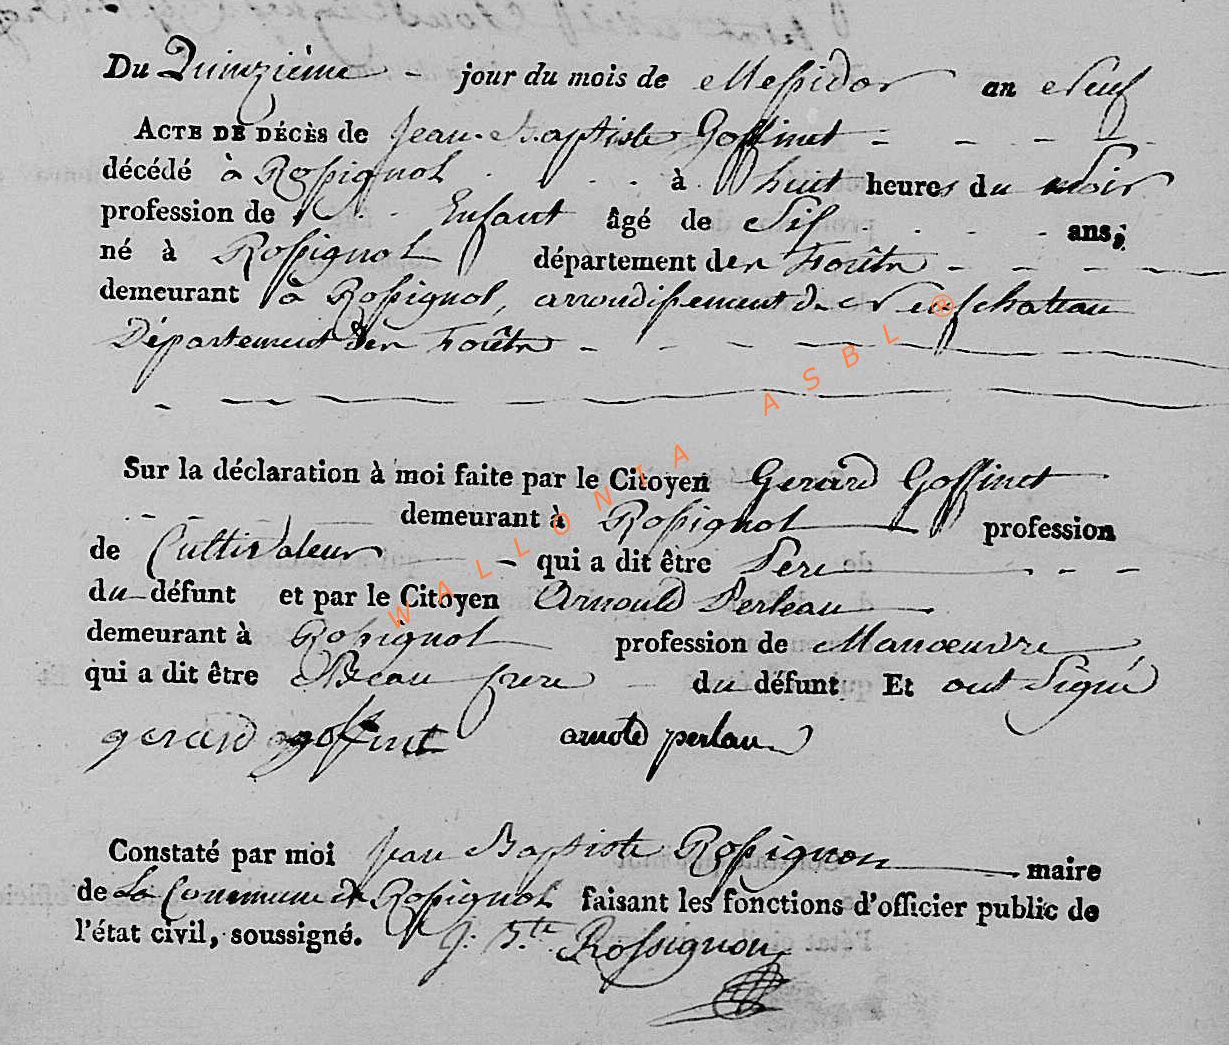 Du Quinzième jour du mois de Messidor an Neuf
ACTE DE DÉCÈS de Jean Baptiste Goffinet
décédé à Rossignol à huit heures du soir
profession de Enfant âgé de Six ans;
né à Rossignol département des Forêts
demeurant à Rossignol, arrondissement de Neufchateau
Département des Forêts
Sur la déclaration à moi faite par le Citoyen Gerard Goffinet
demeurant à Rossignol profession
de Cultivateur qui a dit être Pere
du défunt et par le Citoyen Arnould Perleau
demeurant à Rossignol profession de Manoeuvre
qui a dit être Beau frere du défunt Et ont Signé
gerard goffinet arnold perlau
Constaté par moi Jean Baptiste Rossignon maire
de La Commune de Rossignol faisant les fonctions d'officier public de
l'état civil, soussigné. J. B.te Rossignon
WALLONIA ASBL ®